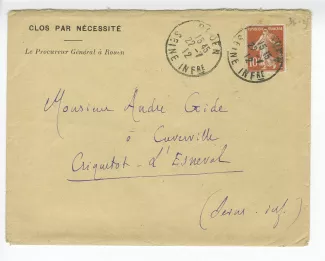 CLOS PAR NÉCESSITÉ
Le Procureur Général à Rouen
ROUEN
15 45
22 - 7
12
SEINE INFRE
SEINE INFRE
10
Monsieur André Gide
à Cuverville
Criquetot-L'Esneval
(Seine-inf.)